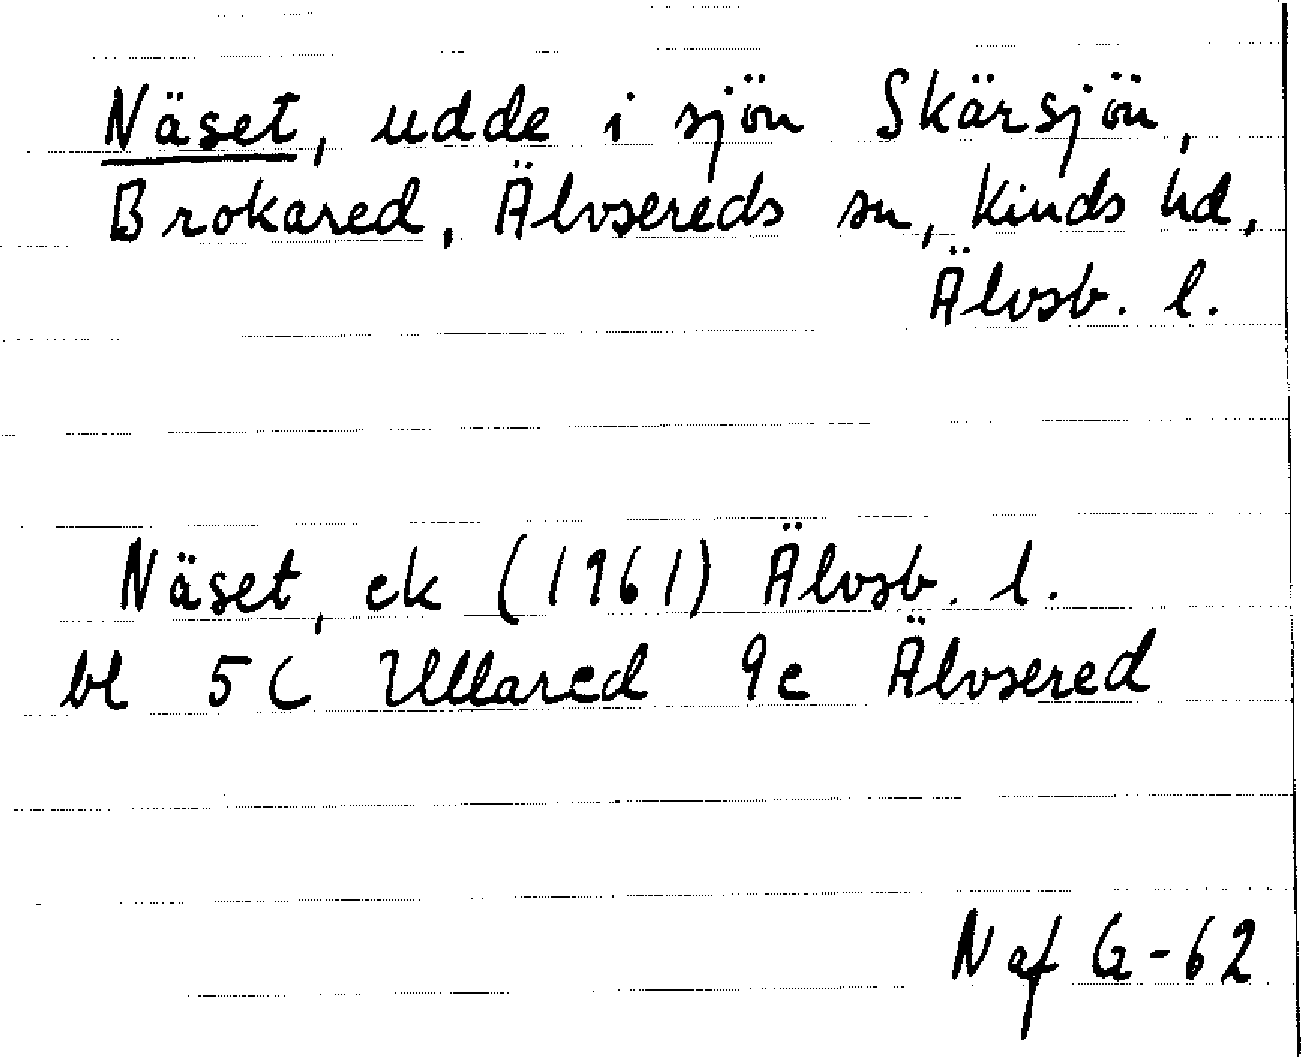 Näset, udde i sjön Skärsjön,
Brokared, Älvsereds sn, Kinds hd,
Älvsb. l.
Näset, ek (1961) Älvsb. l.
bl 5C Ullared 9e Älvsered
N af G-62